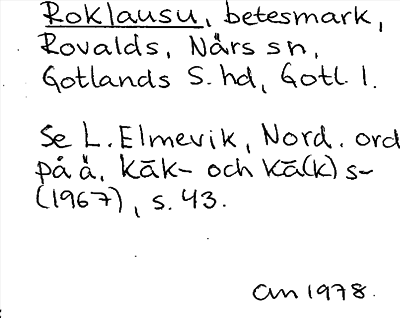 Roklausu, betesmark,
Rovalds, Närs sn,
Gotlands S. hd, Gotl. l.
Se L. Elmevik, Nord. ord
på å. kāk- och kā(k)s-
(1967), s. 43.
am 1978.